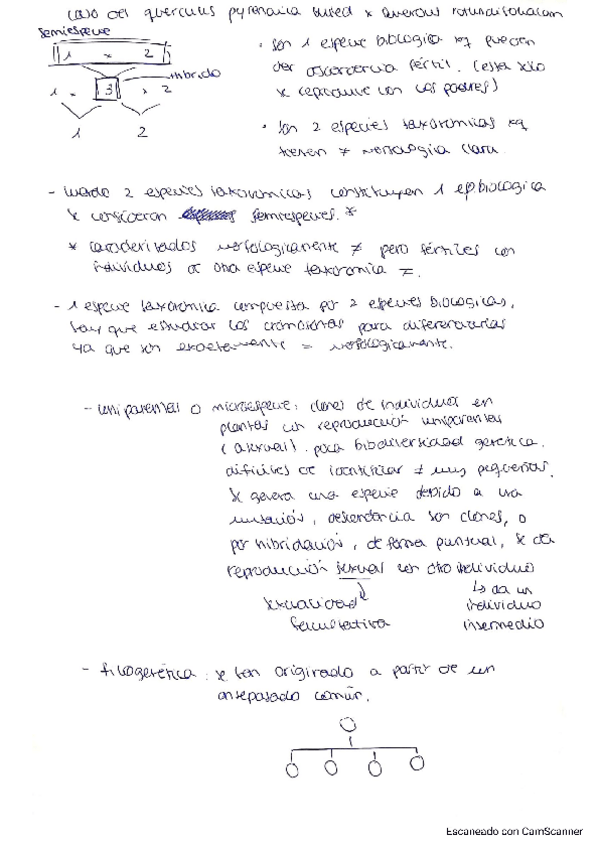 Caso del quercus pyrenaica x quercus rotundifoliam
semiespecie
1 x 2
híbrido
1 x 3 x 2
1 2
· son 1 especie biologica xq pueden
dar ascendencia fértil. (esta solo
se reproduce con los padres)
· son 2 especies taxonomicas xq
tienen ≠ morfologia clara.
- 2 especies taxonómicas constituyen 1 ep biologica
se consideran semiespecies. *
* caracterizados morfologicamente ≠ pero fértiles con
individuos de otra especie taxonomica =.
- 1 especie taxonómica compuesta por 2 especies biologicas,
hay que estudiar los cromosomas para diferenciarlas
ya que son exactamente = morfologicamente.
- uniparental o microespecie: clones de individuos en
plantas con reproducción uniparental
(asexual). poca biodiversidad genética.
difíciles de identificar ≠ muy pequeñas.
Se genera una especie debido a una
mutación, descendencia son clones, o
por hibridación, de forma puntual, se da
reproducción sexual con otro individuo
sexualidad
facultativa
↳ da un
individuo
intermedio
- filogenética: se han originado a partir de un
antepasado común.
Escaneado con CamScanner